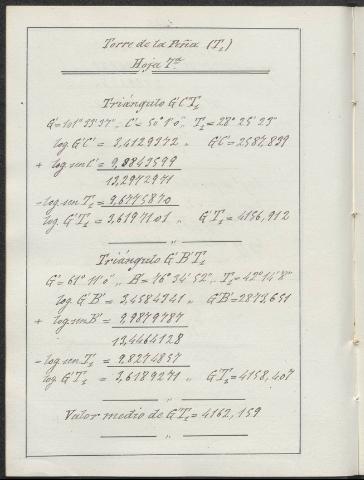 Torre de la Peña (T₁)
Hoja 7ª
Triángulo G'C'T₁
G'=101° 33' 37" „ C'= 50° 1' 0" „ T₁=28° 25' 23"
log. G'C' = 3,4129372 „ G'C'=2587,839
+ log. sen C' = 9,8843599
13,2972971
-log. sen T₁ = 9,6775870
log. G'T₁ = 3,6197101 „ G'T₁=4156,912
Triángulo G'B'T₁
G'=61° 11' 0" „ B'=76° 34' 52" „ T₁=42° 14' 8"
log G'B' = 3,4584341 „ G'B'=2873,651
+ log. sen B' = 9,9879787
13,4464128
-log. sen T₁ = 9,8274857
log G'T₁ = 3,6189271 „ G'T₁=4158,407
Valor medio de G'T₁=4162,159